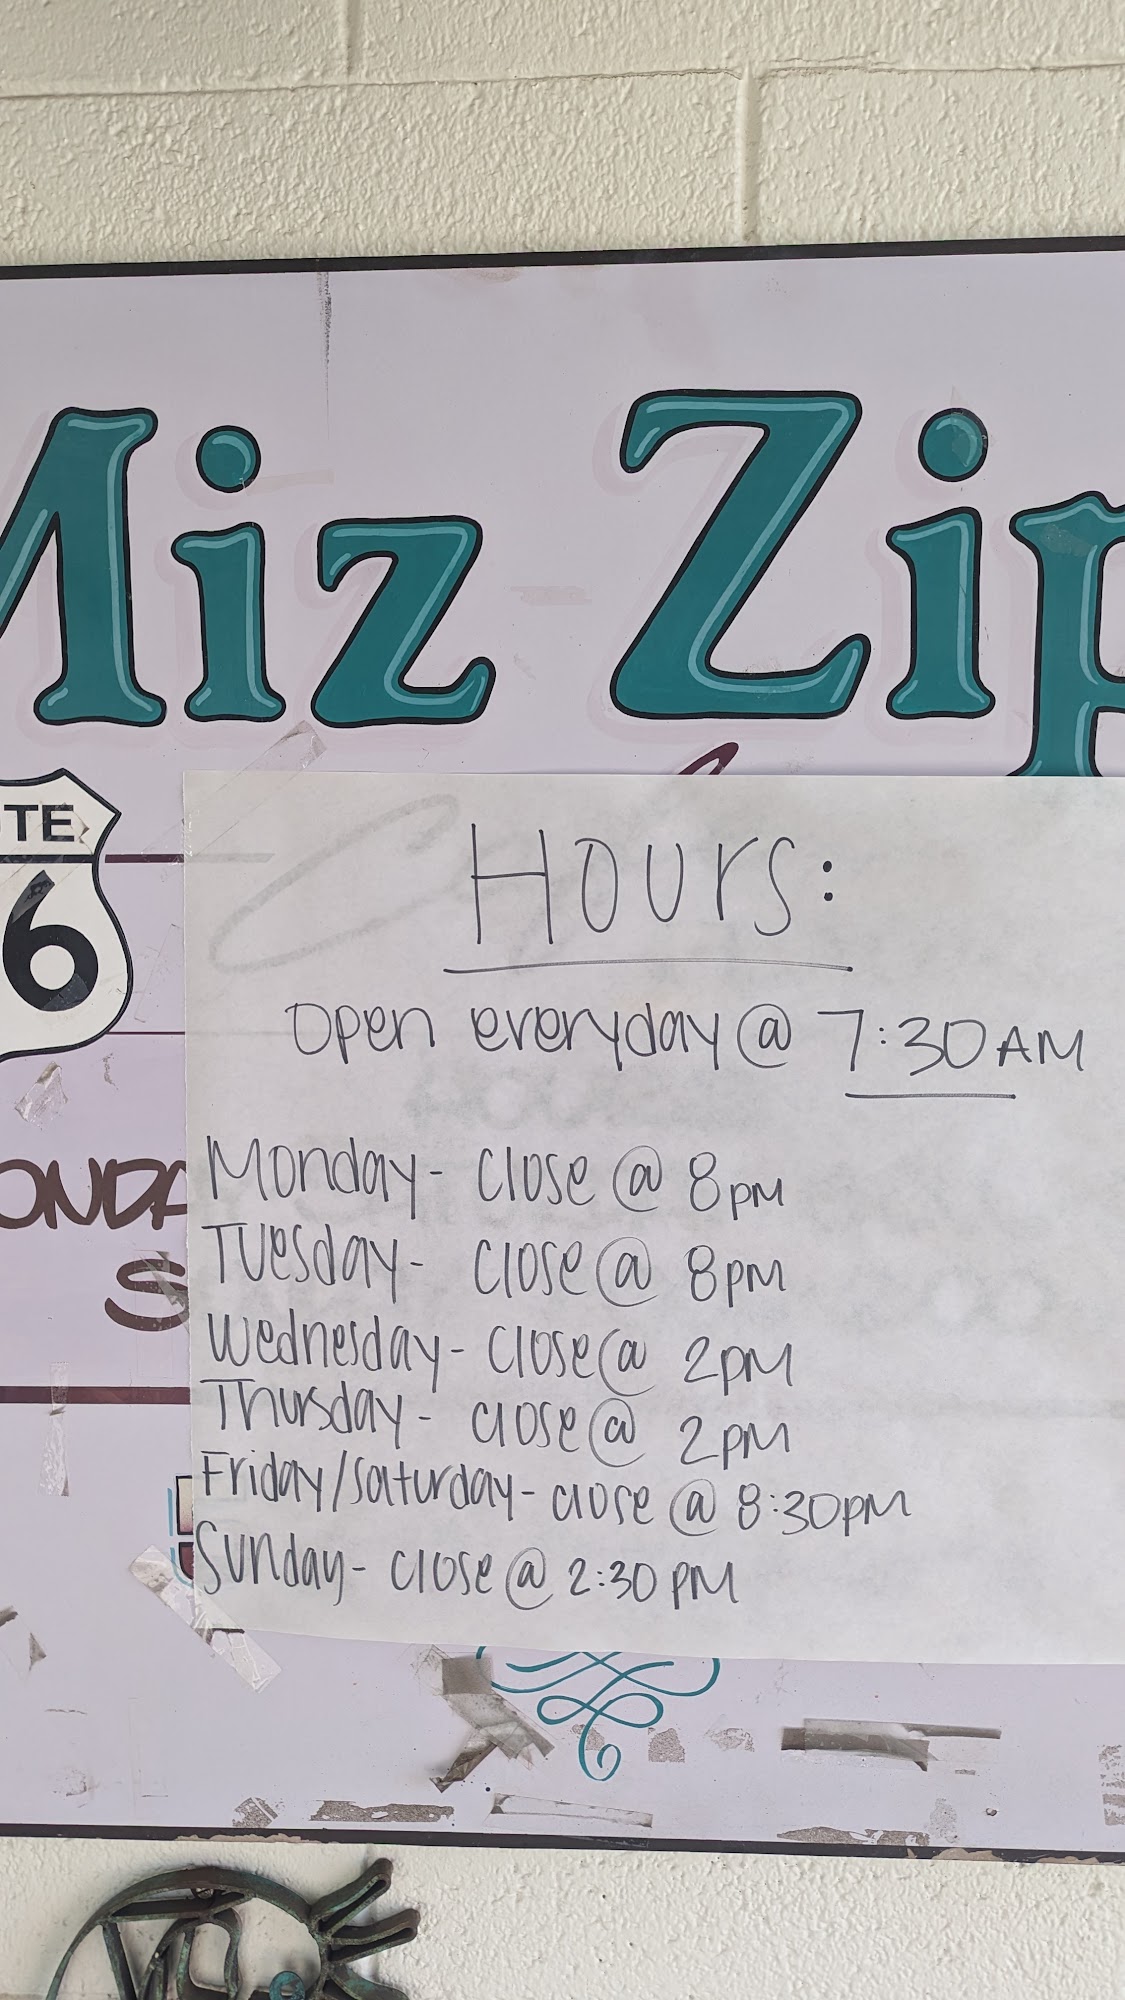 Miz Zip
TE
6
Hours:
open everyday @ 7:30 AM
Monday - close @ 8pm
Tuesday - close @ 8pm
Wednesday - close @ 2pm
Thursday - close @ 2pm
Friday/Saturday - close @ 8:30pm
Sunday - close @ 2:30 PM
ONDA
S